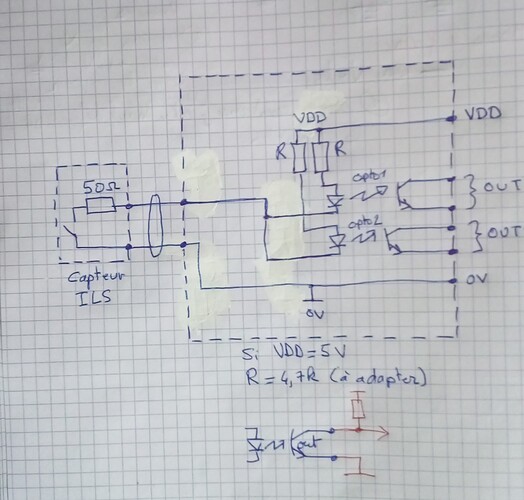 VDD
VDD
R
R
50Ω
opto1
} OUT
opto2
} OUT
Capteur
ILS
0V
0V
Si VDD=5V
R=4,7k (à adapter)
out